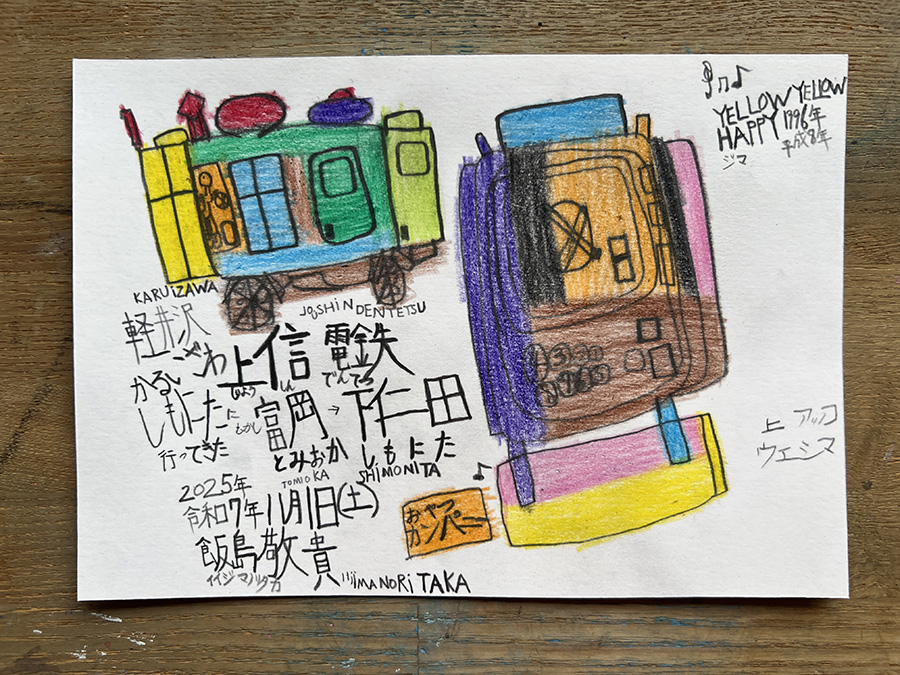 YELLOW YELLOW
HAPPY 1996年
平成8年
ジマ
KARUIZAWA
JOSHIN DENTETSU
軽井沢
かるいざわ
上信電鉄
じょうしんでんてつ
しもにたに
行ってきた
富岡→下仁田
とみおか しもにた
TOMIOKA SHIMONITA
上 アッコ
ウエシマ
おやつ
カンパニー
2025年
令和7年11月1日(土)
飯島敬貴
イイジマノリタカ
IIJIMA NORITAKA